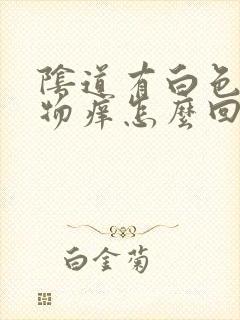 陰道有白色
物癢怎麼回
白金菊